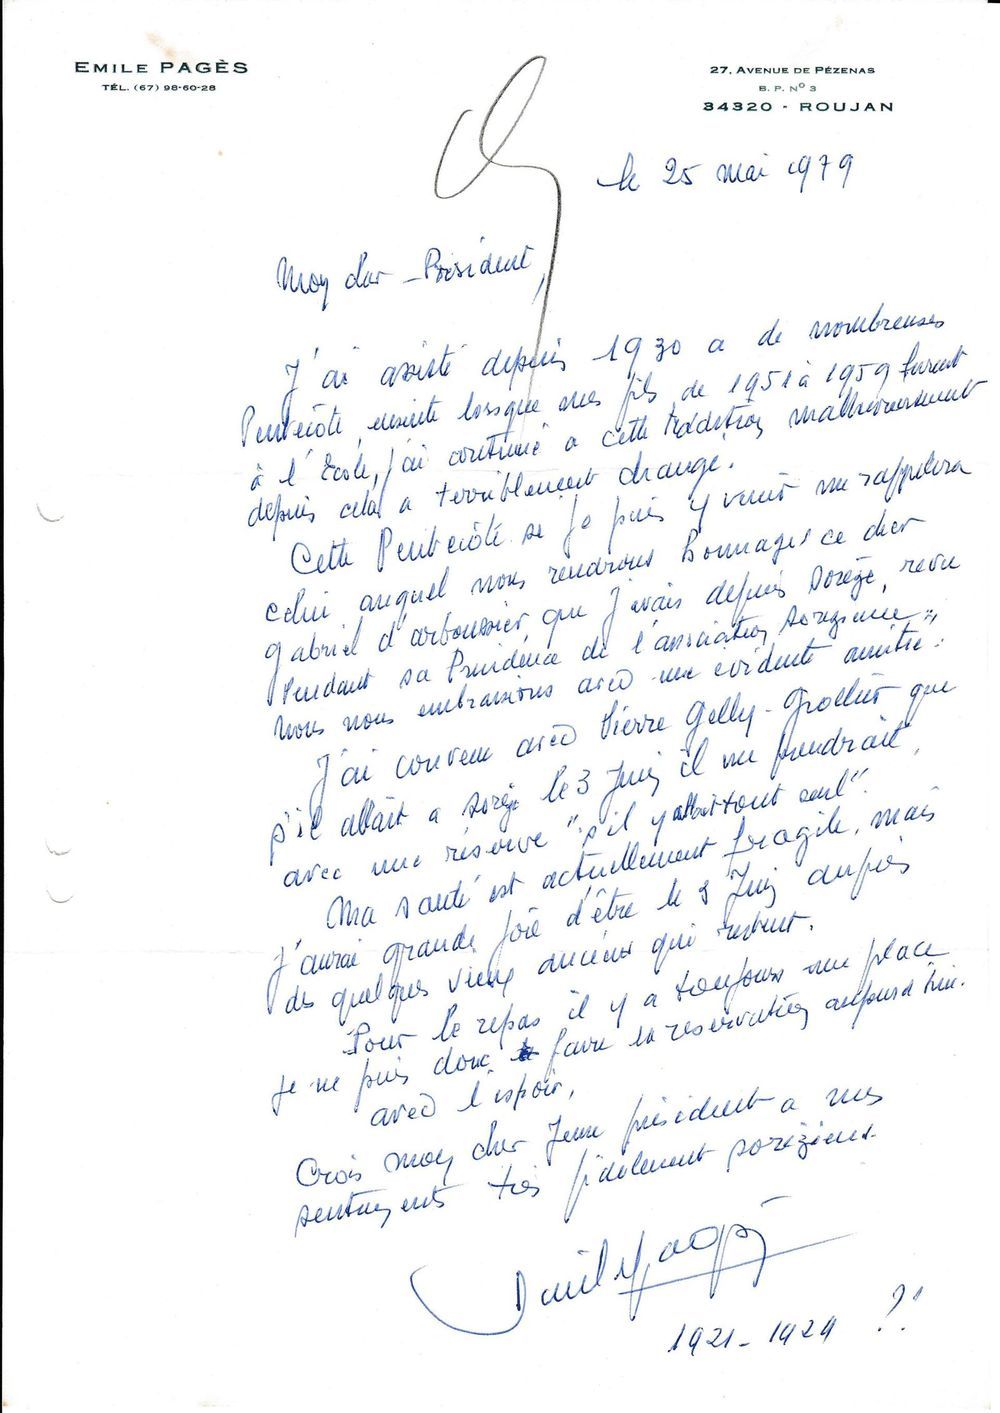 EMILE PAGÈS
TÉL. (67) 98-60-28
27, AVENUE DE PÉZENAS
B. P. Nº 3
34320 - ROUJAN
le 25 mai 1979
Mon cher Président,
J'ai assisté depuis 1930 a de nombreuses
Pentecôte, ensuite lorsque mes fils de 1951 à 1959 furent
à l'Ecole, j'ai continué a cette tradition malheureusement
depuis cela a terriblement changé.
Cette Pentecôte si je puis y venir me rappelera
celui auquel nous rendrons hommage ce cher
Gabriel d'arboussier que j'avais depuis Sorèze, revu
Pendant sa Présidence de l'association sorezienne,
nous nous embrassions avec une évidente amitié.
J'ai convenu avec Pierre Gelly - que
s'il allait a Sorèze le 3 Juin il me prendrait,
avec une réserve "s'il y allait tout seul".
Ma santé est actuellement fragile, mais
j'aurai grande joie d'être le 3 Juin auprès
des quelques vieux anciens qui restent.
Pour le repas il y a toujours une place
je ne puis donc faire la réservation aujourd'hui.
avec l'espoir,
Crois mon cher Jeune président a mes
sentiments très fidèlement soréziens.
Pagès
1921 - 1929 ?!